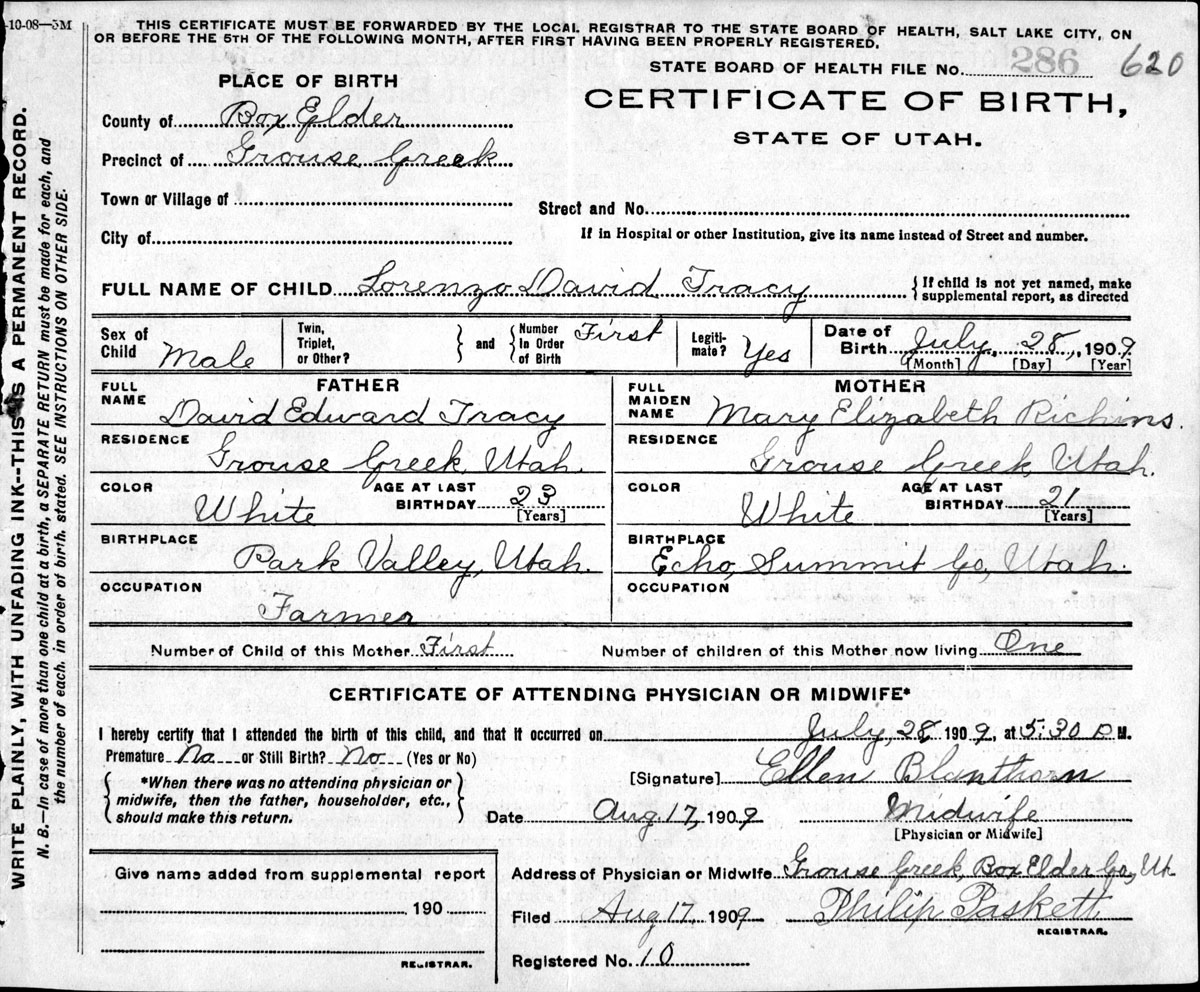 -10-08—5M
THIS CERTIFICATE MUST BE FORWARDED BY THE LOCAL REGISTRAR TO THE STATE BOARD OF HEALTH, SALT LAKE CITY, ON
OR BEFORE THE 5TH OF THE FOLLOWING MONTH, AFTER FIRST HAVING BEEN PROPERLY REGISTERED.
STATE BOARD OF HEALTH FILE No. 286 620
CERTIFICATE OF BIRTH,
STATE OF UTAH.
PLACE OF BIRTH
County of Box Elder
Precinct of Grouse Creek
Town or Village of
City of
Street and No.
If in Hospital or other Institution, give its name instead of Street and number.
FULL NAME OF CHILD Lorenzo David Tracy
{ If child is not yet named, make
supplemental report, as directed
Sex of Child Male
Twin, Triplet, or Other?
} and { Number In Order of Birth First
Legiti-mate? Yes
Date of Birth July 28, 1909
[Month] [Day] [Year]
FATHER
FULL NAME David Edward Tracy
RESIDENCE Grouse Creek, Utah.
COLOR White AGE AT LAST BIRTHDAY 23 [Years]
BIRTHPLACE Park Valley, Utah.
OCCUPATION Farmer
MOTHER
FULL MAIDEN NAME Mary Elizabeth Richins.
RESIDENCE Grouse Creek, Utah.
COLOR White AGE AT LAST BIRTHDAY 21 [Years]
BIRTHPLACE Echo, Summit Co, Utah.
OCCUPATION
Number of Child of this Mother First Number of children of this Mother now living One
CERTIFICATE OF ATTENDING PHYSICIAN OR MIDWIFE*
I hereby certify that I attended the birth of this child, and that it occurred on July, 28, 1909, at 5:30 P. M.
Premature No or Still Birth? No (Yes or No)
{ *When there was no attending physician or
midwife, then the father, householder, etc.,
should make this return. }
[Signature] Ellen Blanthorn
Date Aug. 17, 1909 Midwife
[Physician or Midwife]
Give name added from supplemental report
190
REGISTRAR.
Address of Physician or Midwife Grouse Creek, Box Elder Co, Ut
Filed Aug 17 1909 Philip Paskett
REGISTRAR.
Registered No. 10
WRITE PLAINLY, WITH UNFADING INK--THIS IS A PERMANENT RECORD.
N. B.—In case of more than one child at a birth, a SEPARATE RETURN must be made for each, and
the number of each, in order of birth, stated. SEE INSTRUCTIONS ON OTHER SIDE.